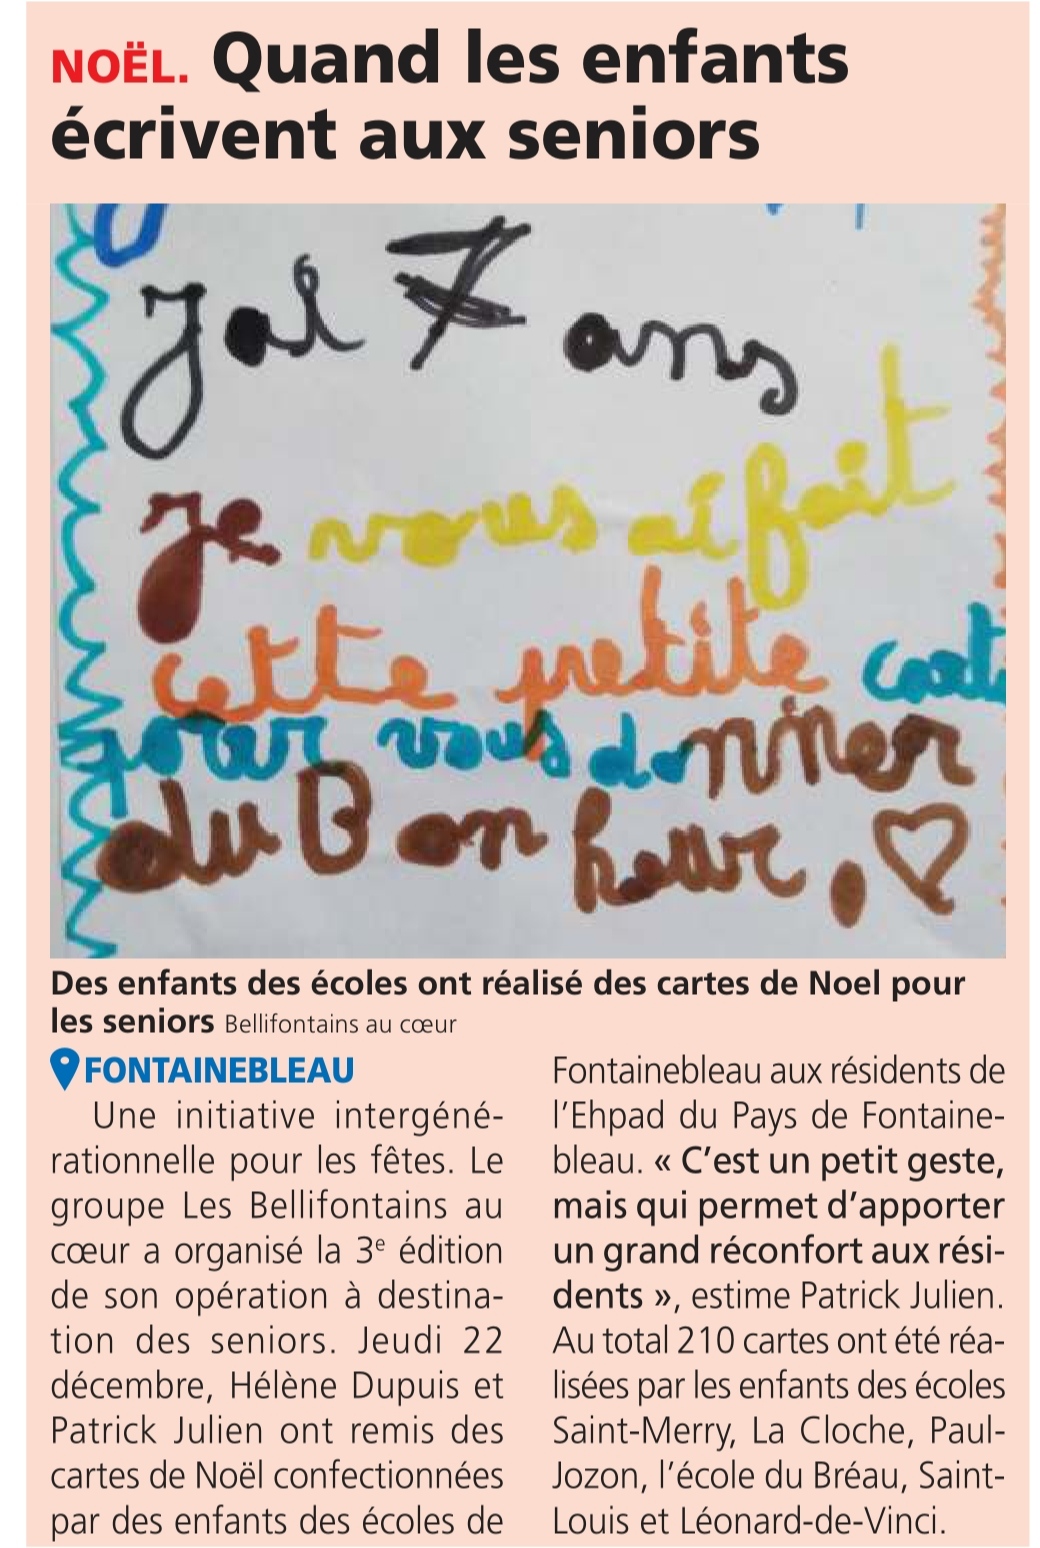 NOËL. Quand les enfants
écrivent aux seniors
J'ai 7 ans
Je vous ai fait
cette petite
pour vous donner
du Bonheur. ♡
Des enfants des écoles ont réalisé des cartes de Noel pour
les seniors Bellifontains au cœur
FONTAINEBLEAU
Une initiative intergéné-
rationnelle pour les fêtes. Le
groupe Les Bellifontains au
cœur a organisé la 3e édition
de son opération à destina-
tion des seniors. Jeudi 22
décembre, Hélène Dupuis et
Patrick Julien ont remis des
cartes de Noël confectionnées
par des enfants des écoles de
Fontainebleau aux résidents de
l'Ehpad du Pays de Fontaine-
bleau. « C'est un petit geste,
mais qui permet d'apporter
un grand réconfort aux rési-
dents », estime Patrick Julien.
Au total 210 cartes ont été réa-
lisées par les enfants des écoles
Saint-Merry, La Cloche, Paul-
Jozon, l'école du Bréau, Saint-
Louis et Léonard-de-Vinci.